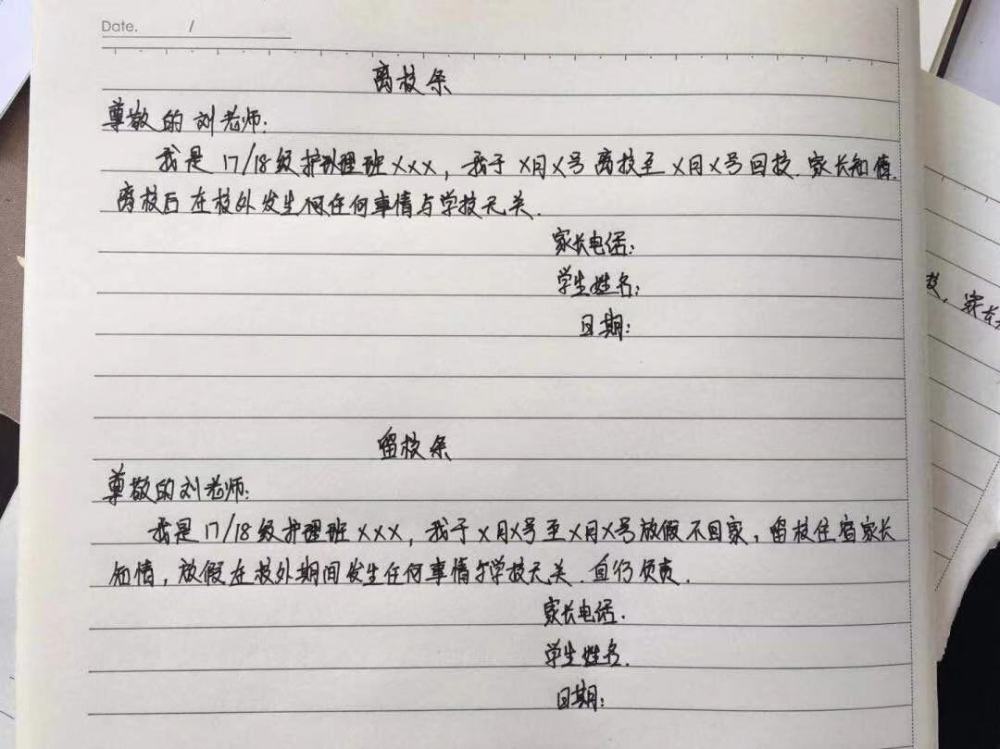 Date. /
离校条
尊敬的刘老师:
我是17/18级护理班XXX,我于X月X号离校至X月X号回校.家长知情.
离校后在校外发生任何事情与学校无关.
家长电话:
学生姓名:
日期:
留校条
尊敬的刘老师:
我是17/18级护理班XXX,我于X月X号至X月X号放假不回家,留校住宿家长
知情,放假在校外期间发生任何事情与学校无关.自行负责.
家长电话.
学生姓名.
日期:
校,家长